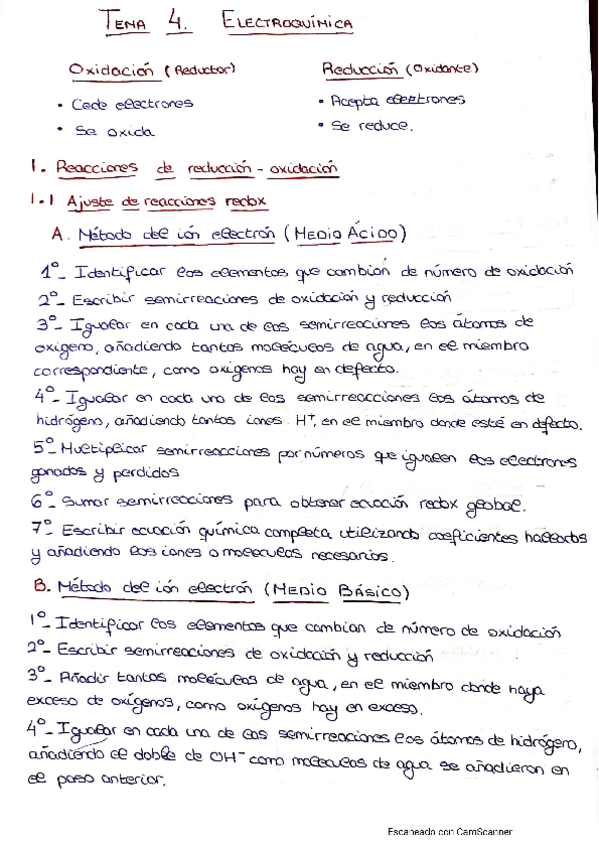 TEMA 4. ELECTROQUÍMICA
Oxidación (Reductor)
• Cede electrones
• Se oxida
Reducción (Oxidante)
• Acepta electrones
• Se reduce.
1. Reacciones de reducción - oxidación
1.1 Ajuste de reacciones redox
A. Método del ión electrón (MEDIO ÁCIDO)
1º- Identificar los elementos que cambian de número de oxidación
2º- Escribir semirreaciones de oxidación y reducción
3º- Igualar en cada una de las semirreaciones los átomos de
oxígeno, añadiendo tantas moléculas de agua, en el miembro
correspondiente, como oxígenos hay en defecto.
4º- Igualar en cada una de las semirreacciones los átomos de
hidrógeno, añadiendo tantos iones H⁺, en el miembro donde esté en defecto.
5º- Multiplicar semirreacciones por números que igualen los electrones
ganados y perdidos
6º- Sumar semirreacciones para obtener ecuación redox global.
7º- Escribir ecuación química completa utilizando coeficientes hallados
y añadiendo los iones o moléculas necesarios.
B. Método del ión electrón (MEDIO BÁSICO)
1º- Identificar los elementos que cambian de número de oxidación
2º- Escribir semirreaciones de oxidación y reducción
3º- Añadir tantas moléculas de agua, en el miembro donde haya
exceso de oxígenos, como oxígenos hay en exceso.
4º- Igualar en cada una de las semirreaciones los átomos de hidrógeno,
añadiendo el doble de OH⁻ como moléculas de agua se añadieron en
el paso anterior.
Escaneado con CamScanner